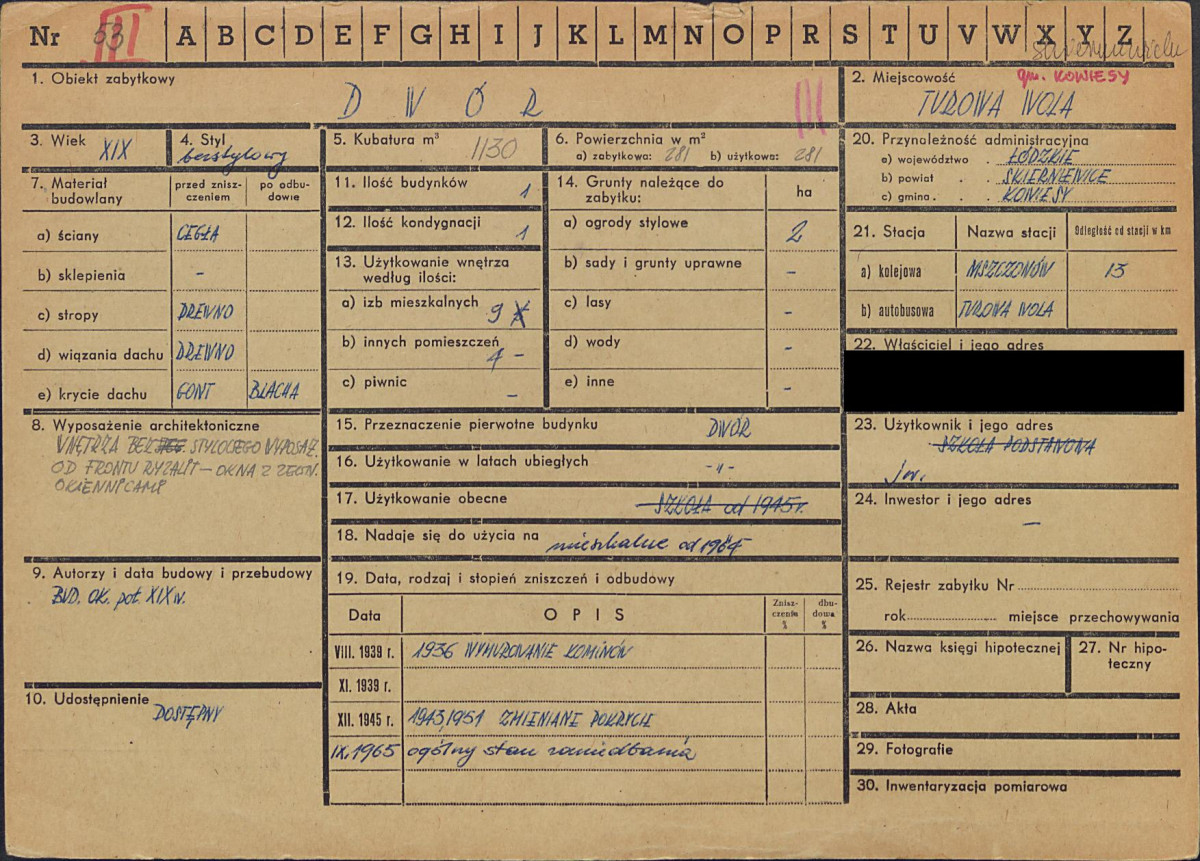 Nr 53 III A B C D E F G H I J K L M N O P R S T U V W X Y Z
1. Obiekt zabytkowy
D W Ó R
III
2. Miejscowość
gm. KOWIESY
TUROWA WOLA
3. Wiek XIX
4. Styl
bezstylowy
5. Kubatura m³ 1130
6. Powierzchnia w m²
a) zabytkowa: 281 b) użytkowa: 281
7. Materiał budowlany
przed zniszczeniem
po odbudowie
a) ściany CEGŁA
b) sklepienia -
c) stropy DREWNO
d) wiązania dachu DREWNO
e) krycie dachu GONT BLACHA
8. Wyposażenie architektoniczne
WNĘTRZA BEZ STYLOWEGO WYPOSAŻ.
OD FRONTU RYZALIT – OKNA Z ZEWN.
OKIENNICAMI
9. Autorzy i data budowy i przebudowy
BUD. OK. poł. XIX w.
10. Udostępnienie
DOSTĘPNY
11. Ilość budynków 1
12. Ilość kondygnacji 1
13. Użytkowanie wnętrza według ilości:
a) izb mieszkalnych 9
b) innych pomieszczeń 4 -
c) piwnic -
14. Grunty należące do zabytku:
ha
a) ogrody stylowe 2
b) sady i grunty uprawne -
c) lasy -
d) wody -
e) inne -
15. Przeznaczenie pierwotne budynku DWÓR
16. Użytkowanie w latach ubiegłych -"-
17. Użytkowanie obecne SZKOŁA od 1945 r.
18. Nadaje się do użycia na mieszkalne od 1964
19. Data, rodzaj i stopień zniszczeń i odbudowy
Data
O P I S
Zniszczenia %
dbudowa %
VIII. 1939 r. 1936 WYMUROWANIE KOMINÓW
XI. 1939 r.
XII. 1945 r. 1943, 1951 ZMIENIANE POKRYCIE
IX. 1965 ogólny stan zaniedbania
20. Przynależność administracyjna
a) województwo . ŁÓDZKIE
b) powiat . . SKIERNIEWICE
c) gmina . . . KOWIESY
21. Stacja
Nazwa stacji
Odległość od stacji w km
a) kolejowa MSZCZONÓW 13
b) autobusowa TUROWA WOLA
22. Właściciel i jego adres
23. Użytkownik i jego adres
SZKOŁA PODSTAWOWA
jw.
24. Inwestor i jego adres
–
25. Rejestr zabytku Nr
rok miejsce przechowywania
26. Nazwa księgi hipotecznej
27. Nr hipoteczny
28. Akta
29. Fotografie
30. Inwentaryzacja pomiarowa